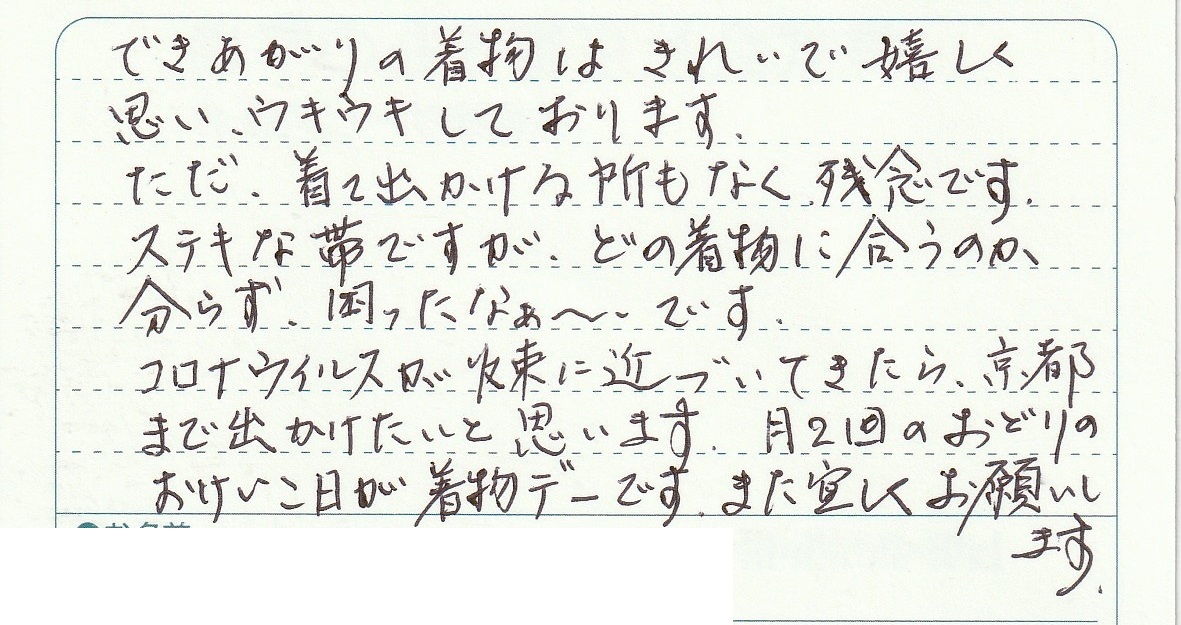 できあがりの着物は きれいで嬉しく
思い、ウキウキしております。
ただ、着て出かける所もなく、残念です。
ステキな帯ですが、どの着物に合うのか、
分らず、困ったなぁ〜。です。
コロナウイルスが収束に近づいてきたら、京都
まで出かけたいと思います。月2回のおどりの
おけいこ日が着物デーです。また宜しくお願いし
ます。